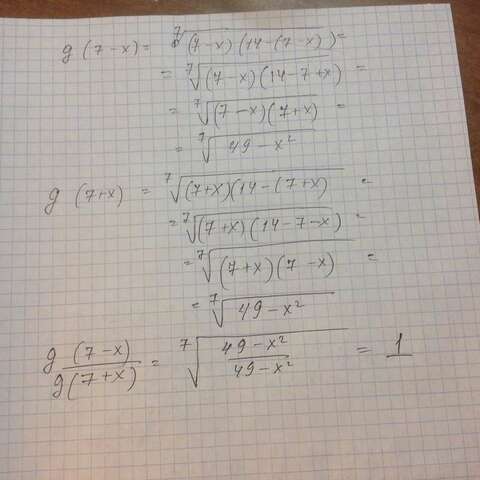 g (7-x) = ⁷√(7-x)(14-(7-x)) =
= ⁷√(7-x)(14-7+x) =
= ⁷√(7-x)(7+x) =
= ⁷√49-x²
g (7+x) = ⁷√(7+x)(14-(7+x) =
= ⁷√(7+x)(14-7-x) =
= ⁷√(7+x)(7-x) =
= ⁷√49-x²
g (7-x) / g(7+x) = ⁷√49-x² / 49-x² = 1